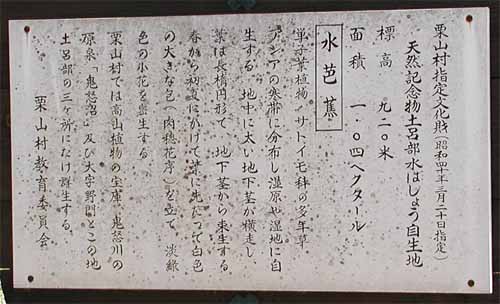 栗山村指定文化財（昭和四十年三月二十日指定）
天然記念物土呂部水ばしょう自生地
標高　九二〇米
面積　一・〇四ヘクタール
水芭蕉
単子葉植物　サトイモ科の多年草
アジアの寒帯に分布し湿原や湿地に自
生する　地中に太い地下茎が横走し
葉は長楕円形で　地下茎から束生する
春から初夏にかけて葉に先だって白色
の大きな包（肉穂花序）を立て　淡緑
色の小花を密生する
栗山村では高山植物の宝庫　鬼怒川の
源泉　鬼怒沼　及び大字野門とこの地
土呂部の三ヶ所にだけ群生する。
栗山村教育委員会